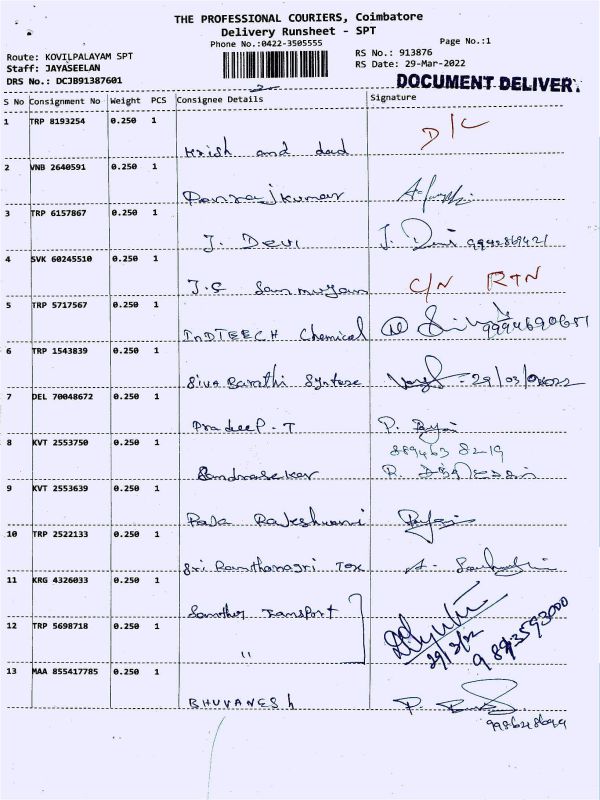 THE PROFESSIONAL COURIERS, Coimbatore
Delivery Runsheet - SPT
Phone No.:0422-3505555
Page No.:1
Route: KOVILPALAYAM SPT
RS No.: 913876
Staff: JAYASEELAN
RS Date: 29-Mar-2022
DRS No.: DCJB91387601
DOCUMENT DELIVERY
S No Consignment No Weight PCS Consignee Details Signature
1 TRP 8193254 0.250 1
Krish and dad D/C
2 VNB 2640591 0.250 1
Ponrajkumar
3 TRP 6157867 0.250 1
J. Devi J. Devi
4 SVK 60245510 0.250 1
J.S Sanmugam C/N RTN
5 TRP 5717567 0.250 1
INDTEECH Chemical
6 TRP 1543839 0.250 1
Siva Barathi Syntexe 29/03/2022
7 DEL 70048672 0.250 1
Pradeep.T
8 KVT 2553750 0.250 1
889463 8219
Sandrasekar
9 KVT 2553639 0.250 1
Raja Rajeshwari
10 TRP 2522133 0.250 1
Sri Ramthanagri Tex
11 KRG 4326033 0.250 1
Santhor Transport
12 TRP 5698718 0.250 1
"
29/3/22
13 MAA 855417785 0.250 1
BHUVANESh